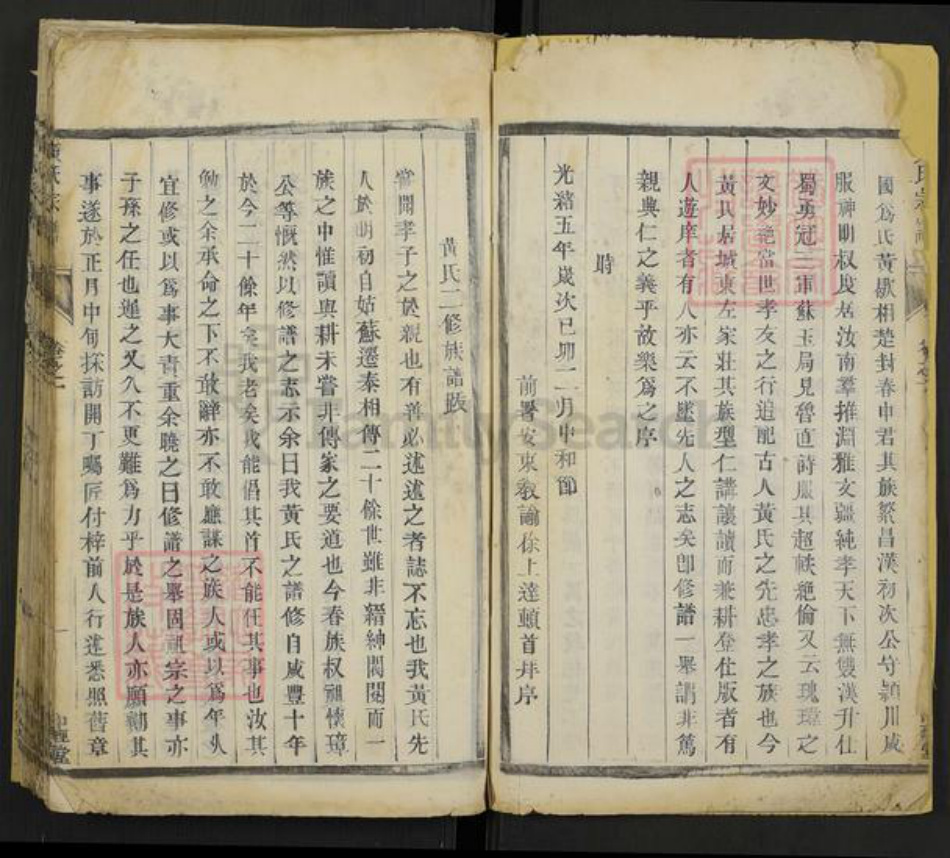 國爲氏黃歇相楚封春申君其族繁昌漢初次公守潁川咸
服神明叔度居汝南羣推淵雅文疆純孝天下無雙漢升仕
蜀勇冠三軍蘇玉局見魯直詩服其超軼絶倫又云瑰瑋之
文妙絶當世孝友之行追配古人黃氏之先忠孝之族也今
黃氏居城東左家莊其族型仁講讓讀而兼耕登仕版者有
人遊庠者有人亦云不墜先人之志矣卽修譜一舉謂非篤
親典仁之義乎故樂爲之序
時
光緒五年歲次己卯二月中和節
前署安東教諭徐上達頓首拜序
黃氏二修族譜跋
嘗聞孝子之於親也有善必述述之者誌不忘也我黃氏先
人於明初自姑蘇遷泰相傳二十餘世雖非縉紳閥閱而一
族之中惟讀與耕未嘗非傳家之要道也今春族叔祖懷璋
公等慨然以修譜之志示余曰我黃氏之譜修自咸豐十年
於今二十餘年矣我老矣我能倡其首不能任其事也汝其
勉之余承命之下不敢辭亦不敢應謀之族人或以爲年久
宜修或以爲事大責重余曉之曰修譜之舉固祖宗之事亦
子孫之任也遲之又久不更難爲力乎於是族人亦願勷其
事遂於正月中旬採訪開丁囑匠付梓前人行述悉照舊章
黃氏宗譜
卷之一
FamilySearch